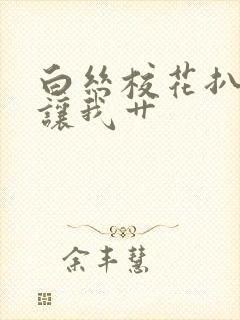 白丝校花扒
讓我艹
余丰慧